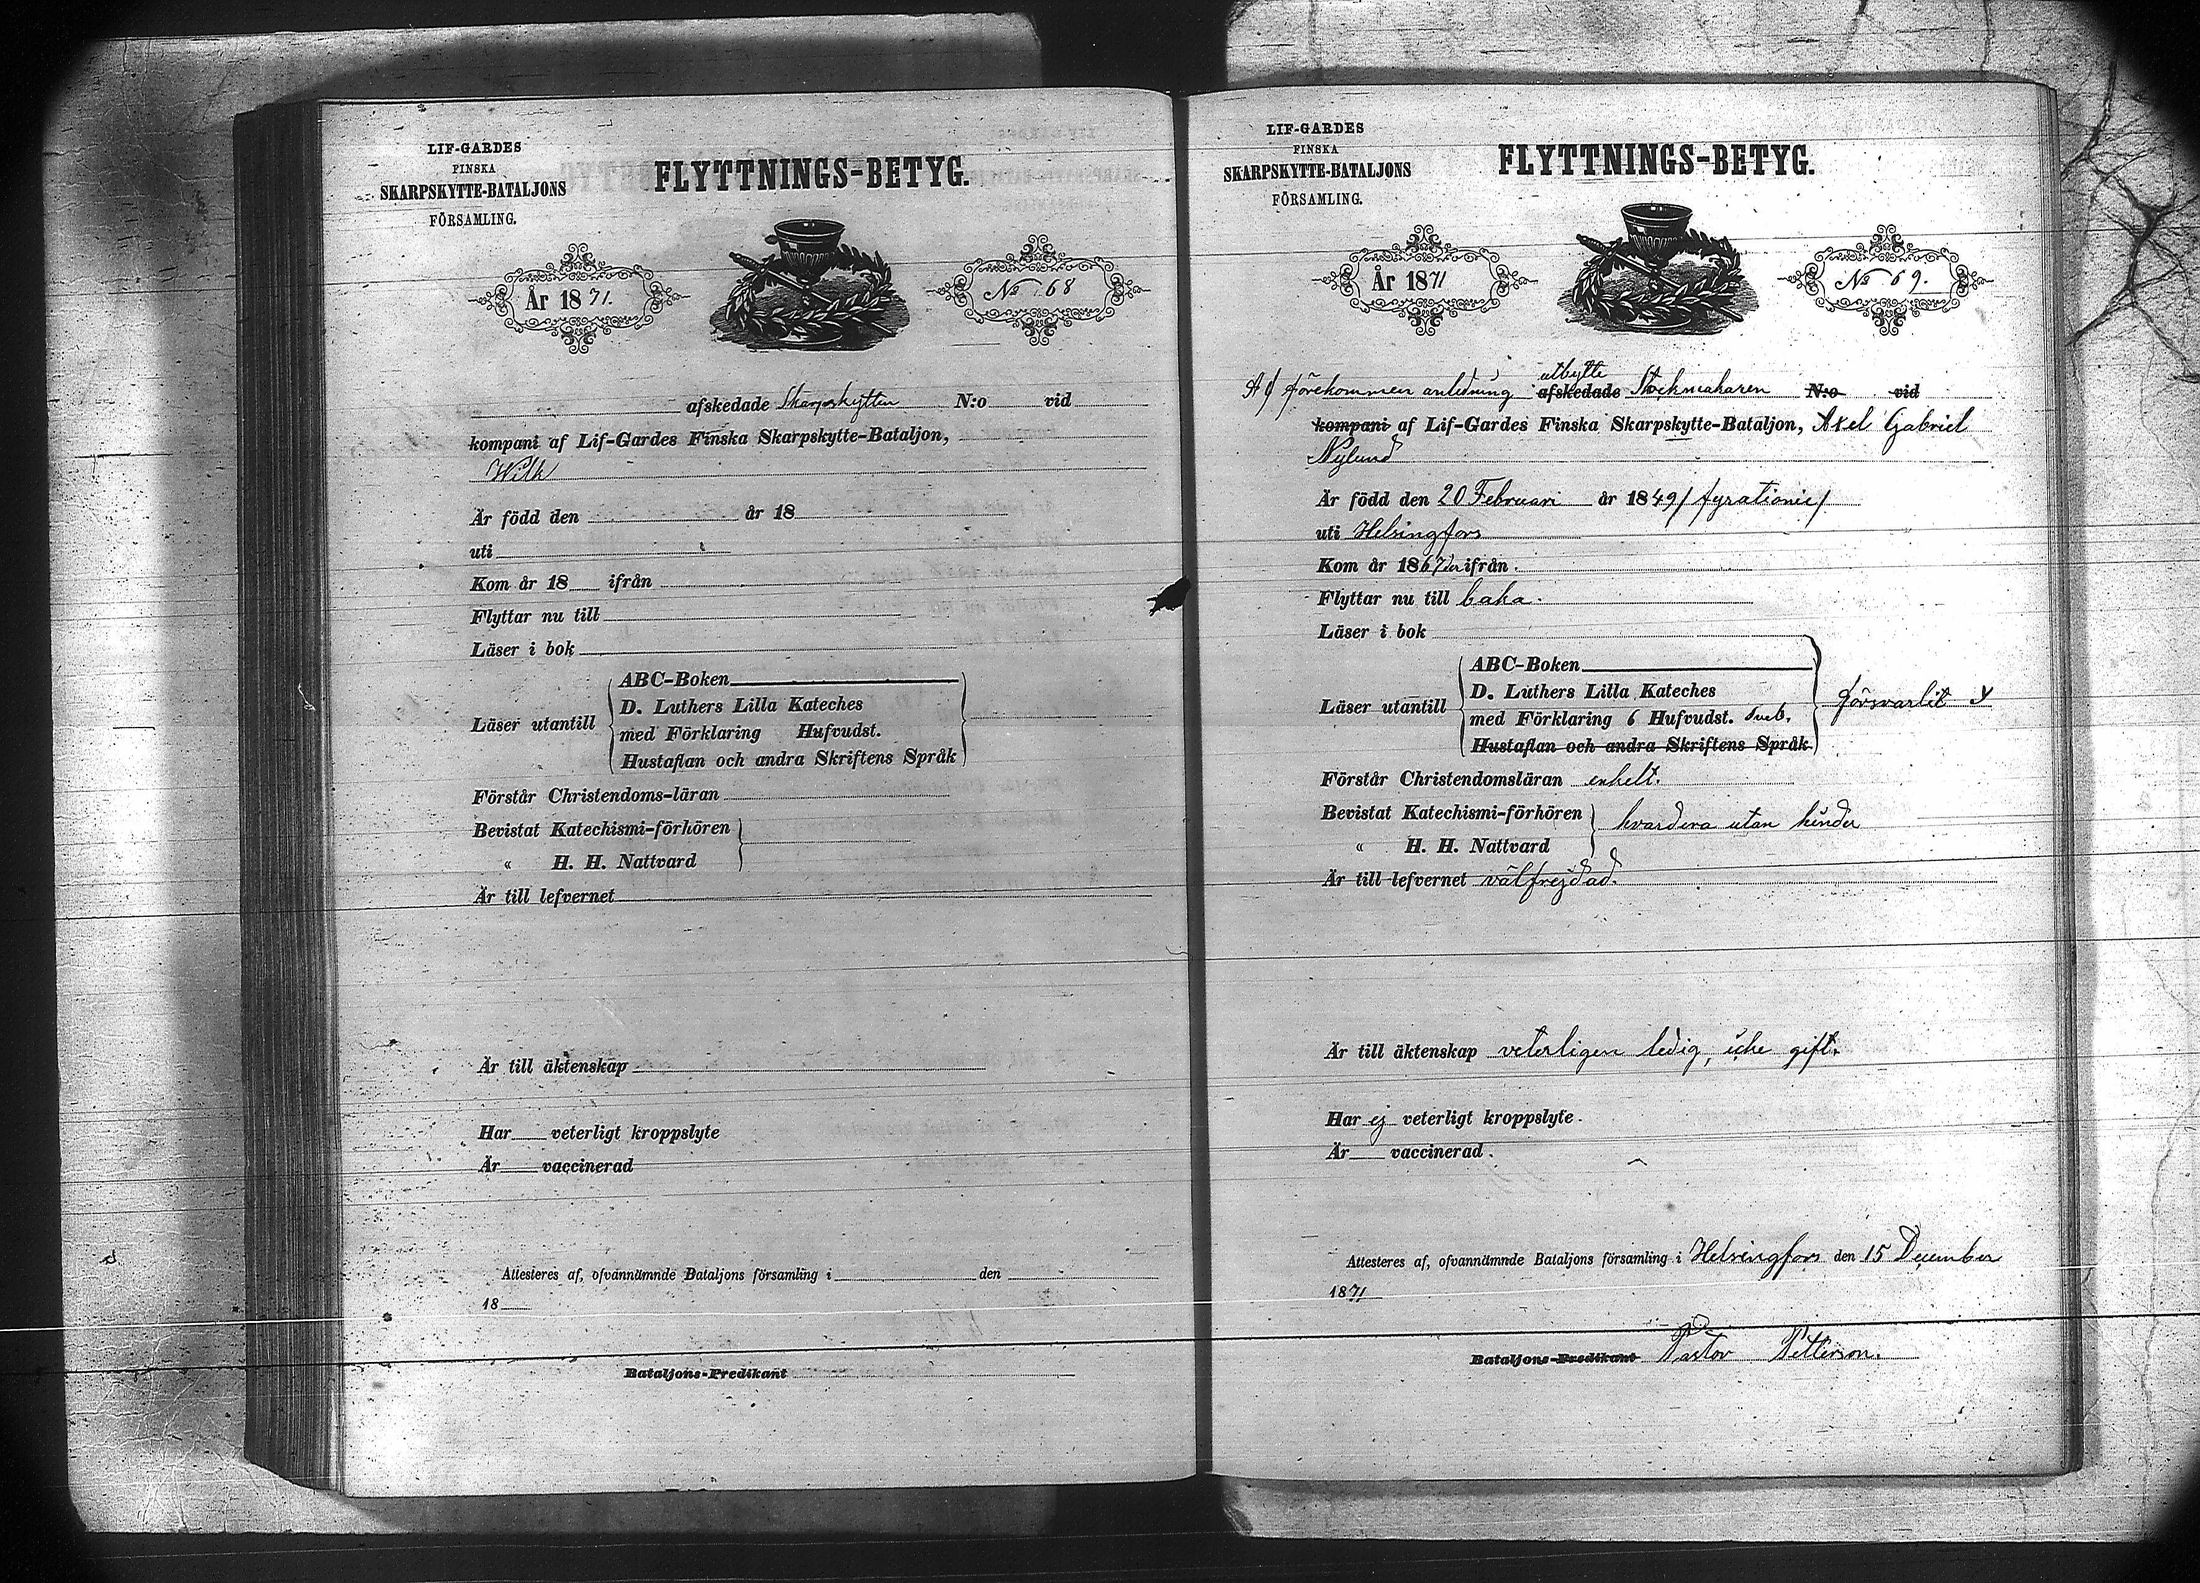 LIF-GARDES
FINSKA
SKARPSKYTTE-BATALJONS
FÖRSAMLING.
FLYTTNINGS-BETYG.
År 1871.
No 68
afskedade Skarpskytten N:o vid
kompani af Lif-Gardes Finska Skarpskytte-Bataljon,
Wilk
Är född den år 18
uti
Kom år 18 ifrån
Flyttar nu till
Läser i bok
Läser utantill
ABC-Boken
D. Luthers Lilla Kateches
med Förklaring Hufvudst.
Hustaflan och andra Skriftens Språk
Förstår Christendoms-läran
Bevistat Katechismi-förhören
" H. H. Nattvard
Är till lefvernet
Är till äktenskap
Har veterligt kroppslyte
Är vaccinerad
Attesteres af, ofvannämnde Bataljons församling i den
18
Bataljons-Predikant
LIF-GARDES
FINSKA
SKARPSKYTTE-BATALJONS
FÖRSAMLING.
FLYTTNINGS-BETYG.
År 1871
No 69.
utbytte
Af förekommen anledning afskedade Stockmakaren N:o vid
kompani af Lif-Gardes Finska Skarpskytte-Bataljon, Axel Gabriel
Nylund
Är född den 20 Februari år 1849
uti Helsingfors
Kom år 1867 ifrån
Flyttar nu till
Läser i bok
Läser utantill
ABC-Boken
D. Luthers Lilla Kateches
med Förklaring 6 Hufvudst.
Hustaflan och andra Skriftens Språk
försvarlit
Förstår Christendomsläran enkelt.
Bevistat Katechismi-förhören
" H. H. Nattvard
hvardera utan hinder
Är till lefvernet välfrejdad.
Är till äktenskap veterligen ledig, icke gift.
Har ej veterligt kroppslyte.
Är vaccinerad.
Attesteres af, ofvannämnde Bataljons församling i Helsingfors den 15 December
1871
Bataljons-Predikant Pastor Petterson.